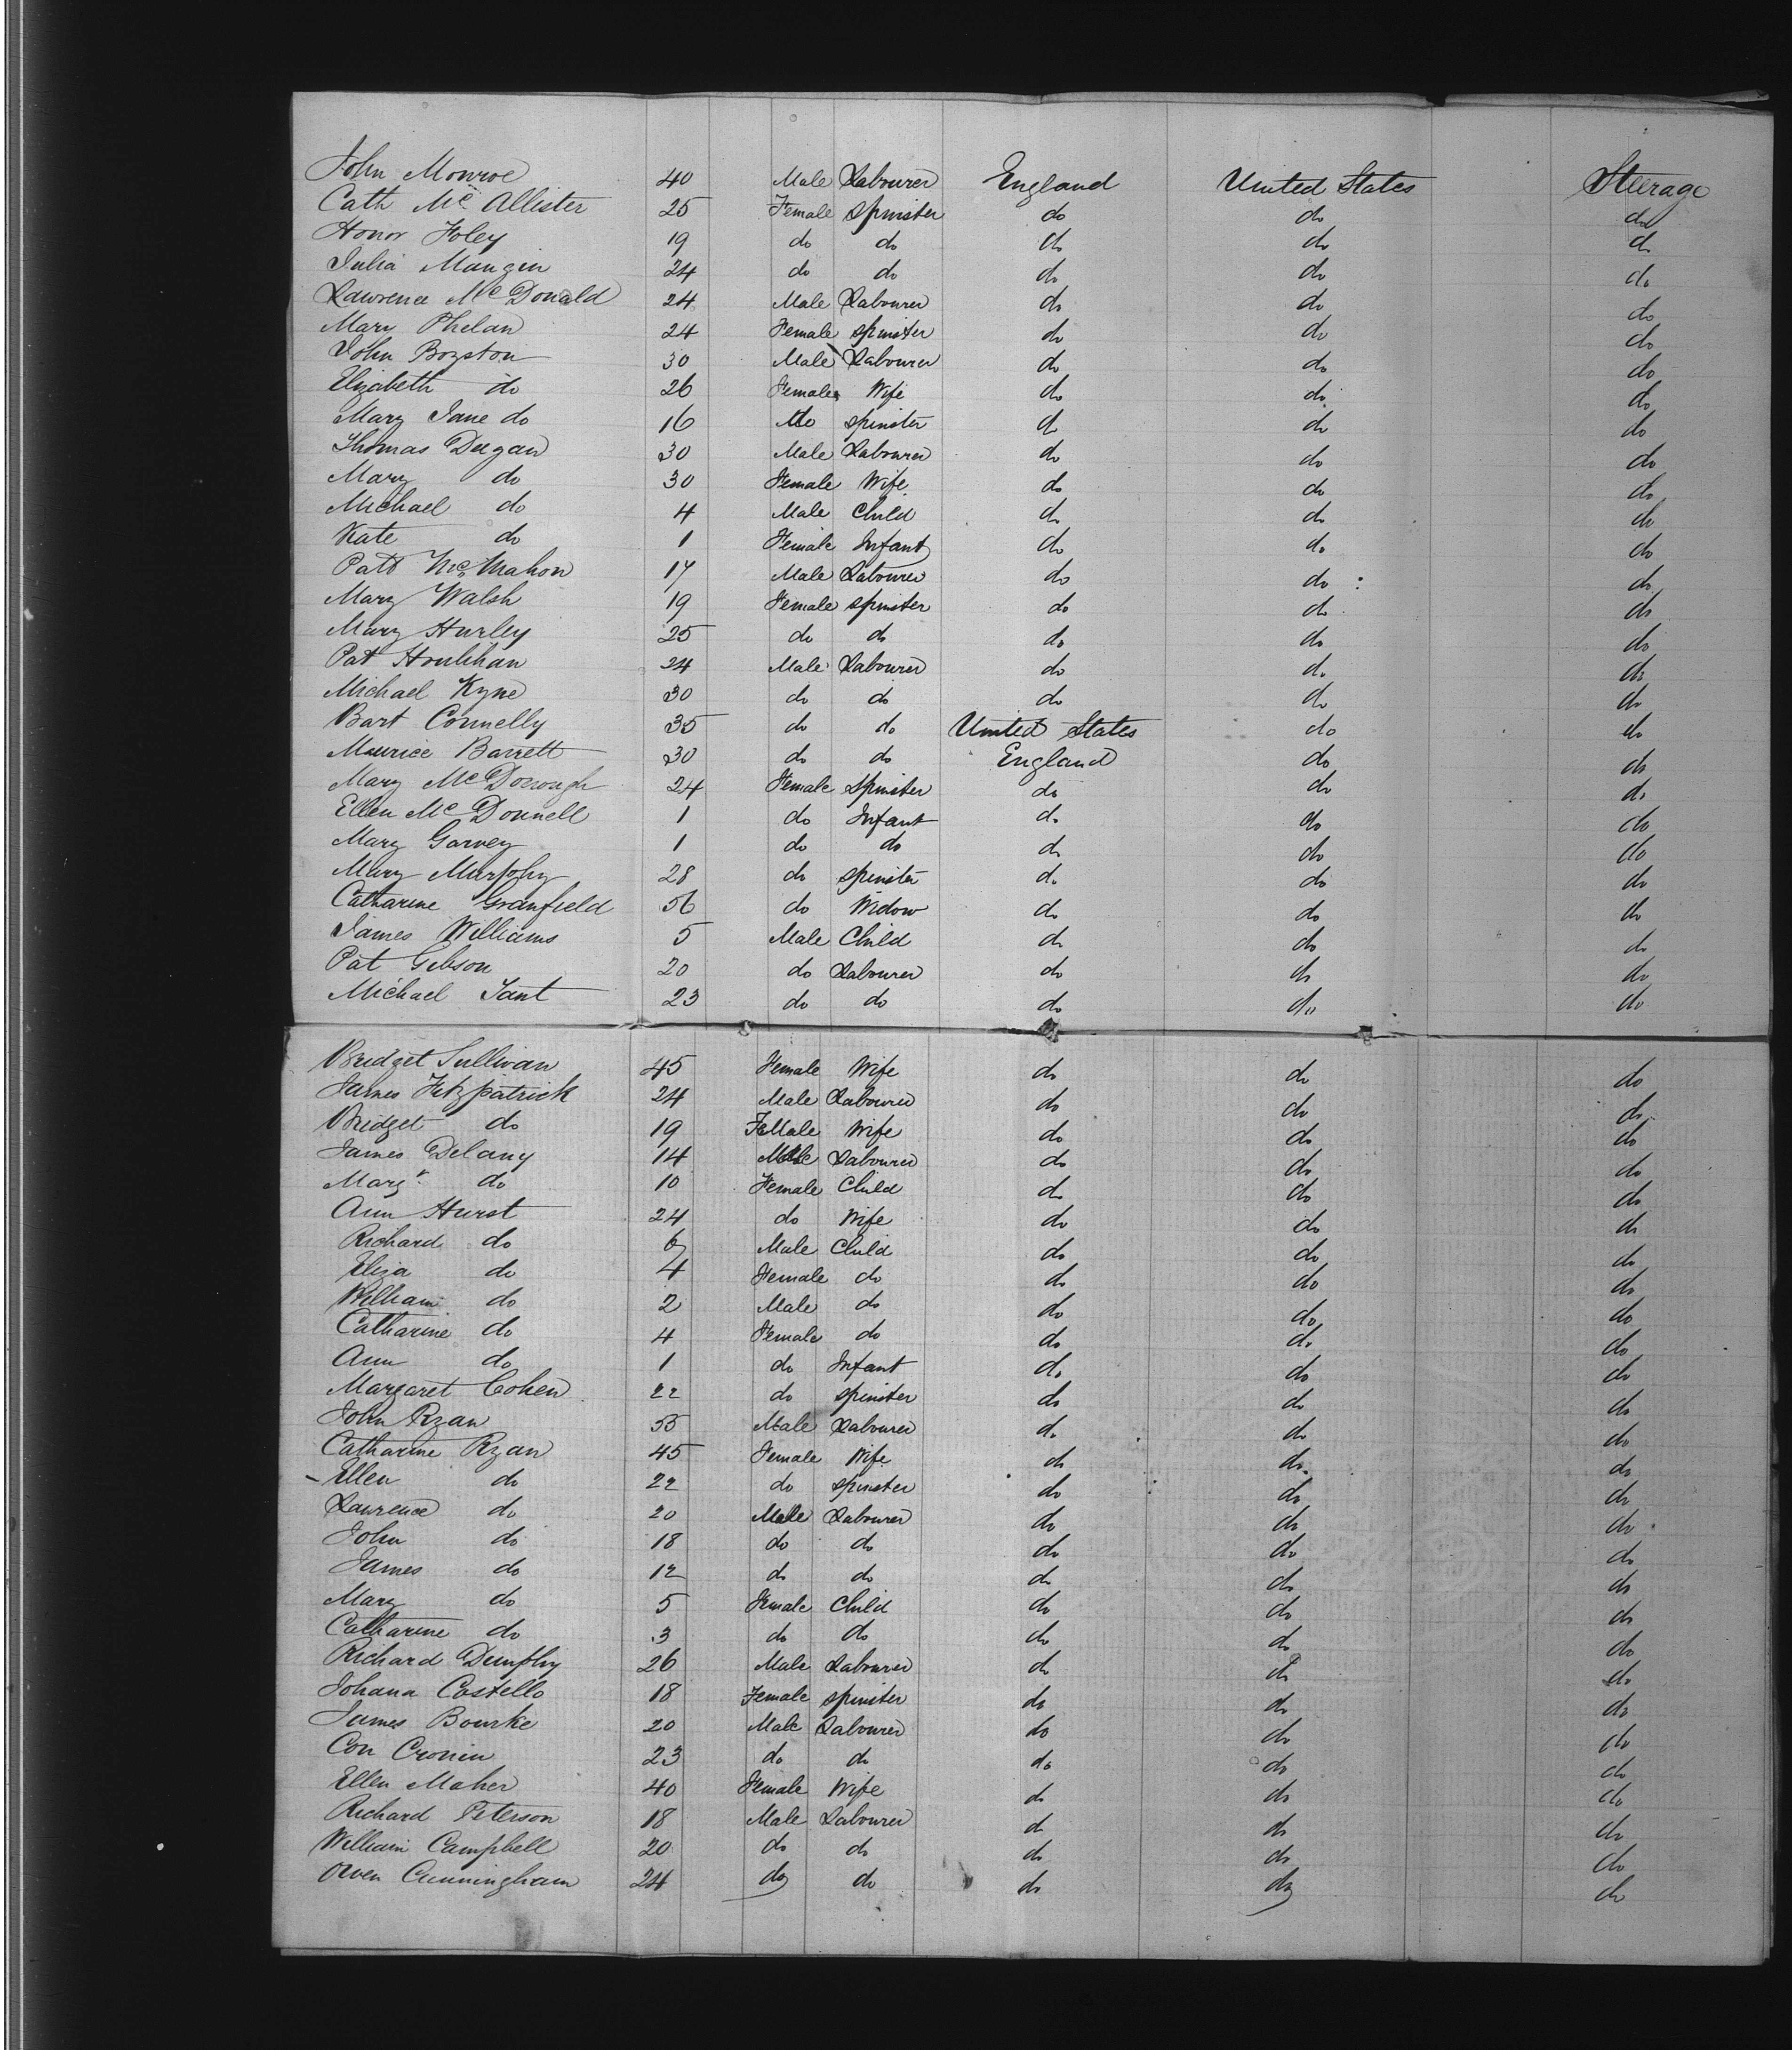 John Monroe 40 Male Labourer England United States Steerage
Cath McAllister 25 Female Spinster do do do
Honor Foley 19 do do do do do
Julia Mangin 24 do do do do do
Lawrence McDonald 24 Male Labourer do do do
Mary Phelan 24 Female Spinster do do do
John Boyston 30 Male Labourer do do do
Elizabeth do 26 Female Wife do do do
Mary Jane do 16 do Spinster do do do
Thomas Dugan 30 Male Labourer do do do
Mary do 30 Female Wife do do do
Michael do 4 Male Child do do do
Kate do 1 Female Infant do do do
Patt McMahon 17 Male Labourer do do do
Mary Walsh 19 Female Spinster do do do
Mary Hurley 25 do do do do do
Pat Houlihan 24 Male Labourer do do do
Michael Kyne 30 do do do do do
Bart Connelly 35 do do United States do do
Maurice Barrett 30 do do England do do
Mary 24 Female Spinster do do do
Ellen McDonnell 1 do Infant do do do
Mary Garvey 1 do do do do do
Mary Murphy 28 do Spinster do do do
Catharine Granfield 56 do Widow do do do
James Williams 5 Male Child do do do
Pat Gibson 20 do Labourer do do do
Michael 23 do do do do do
Bridget Sullivan 45 Female Wife do do do
James Fitzpatrick 24 Male Labourer do do do
Bridget do 19 FeMale Wife do do do
James Delany 14 Male Labourer do do do
Margt do 10 Female Child do do do
Ann Hurst 24 do Wife do do do
Richard do 6 Male Child do do do
Eliza do 4 Female do do do do
William do 2 Male do do do do
Catharine do 4 Female do do do do
Ann do 1 do Infant do do do
Margaret Cohen 22 do Spinster do do do
John Ryan 55 Male Labourer do do do
Catharine Ryan 45 Female Wife do do do
Ellen do 22 do Spinster do do do
Lawrence do 20 Male Labourer do do do
John do 18 do do do do do
James do 12 do do do do do
Mary do 5 Female Child do do do
Catharine do 3 do do do do do
Richard Dumphy 26 Male Labourer do do do
Johana Costello 18 Female Spinster do do do
James Bourke 20 Male Labourer do do do
Con Cronin 23 do do do do do
Ellen Maher 40 Female Wife do do do
Richard Peterson 18 Male Labourer do do do
William Campbell 20 do do do do do
Owen Cunningham 24 do do do do do